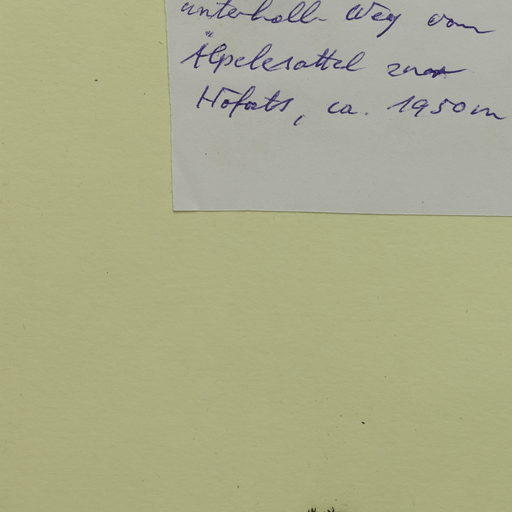 unterhalb Weg vom
Älpelesattel zur
Höfats, ca. 1950m